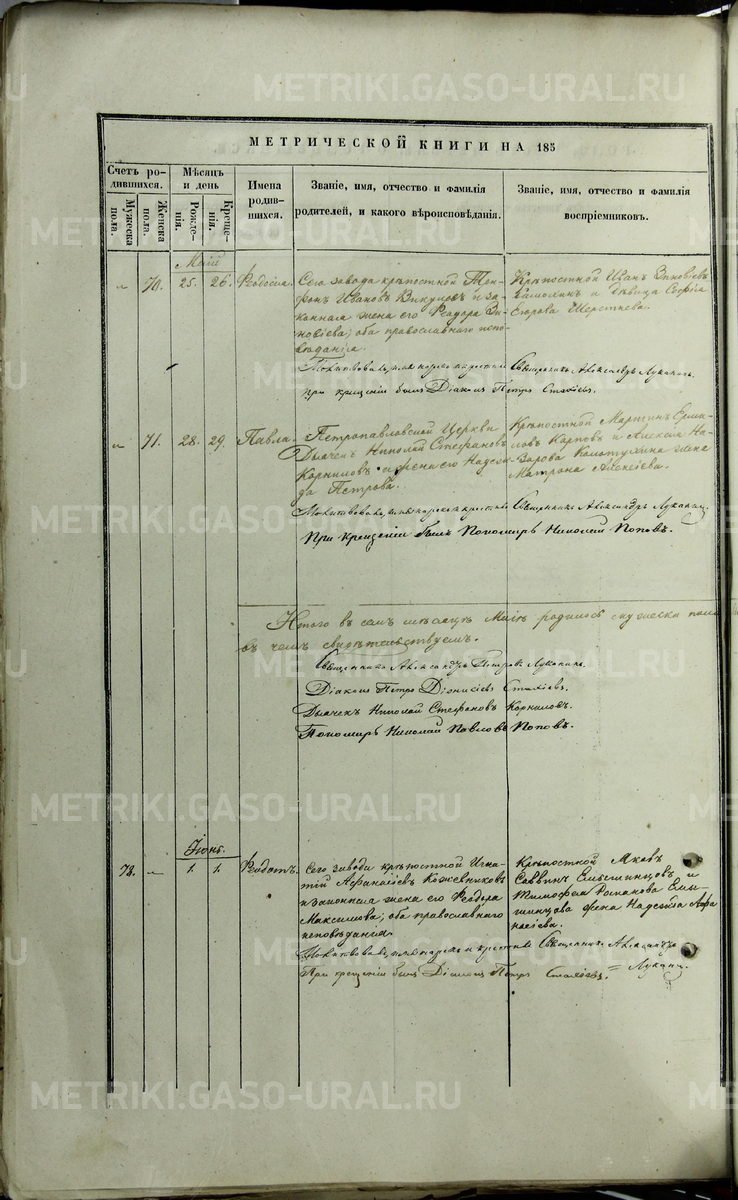 METRIKI.GASO-URAL.RU
МЕТРИЧЕСКОЙ КНИГИ НА 185
Счетъ родившихся.
Мужеска пола.
Женска пола.
Мѣсяцъ и день
Рожденія.
Крещенія.
Имена родившихся.
Званіе, имя, отчество и фамилія
родителей, и какого вѣроисповѣданія.
Званіе, имя, отчество и фамилія
воспріемниковъ.
Май
" 70. 25. 26. Ѳеодосія.
Сего завода крѣпостной
Ивановъ и за-
конная жена его Ѳеодора Зи-
новіева, оба православнаго испо-
вѣданія.
Крѣпостной Иванъ Зиновіевъ
и дѣвица Софія
Егорова Шерстнева.
Молитвовалъ, имя нарекъ и крестилъ Священникъ Александръ Луканинъ.
при крещеніи былъ Діаконъ Петръ Стахіевъ.
" 71. 28. 29. Павла.
Петропавловской Церкви
Дьячекъ Николай Стефановъ
Корниловъ и жена его Надеж-
да Петрова.
Крѣпостной Мартинъ Ерми-
ловъ Карповъ и Алексѣя На-
зарова Колотухина жена
Матрона Алексѣева.
Молитвовалъ, имя нарекъ и крестилъ Священникъ Александръ Луканинъ.
При крещеніи былъ Пономарь Николай Поповъ.
Итого въ семъ мѣсяцѣ Маіѣ родилось мужеска пола
въ чемъ свидѣтельствуемъ.
Священникъ Александръ Петровъ Луканинъ.
Діаконъ Петръ Діонисіевъ Стахіевъ.
Дьячекъ Николай Стефановъ Корниловъ.
Пономарь Николай Павловъ Поповъ.
Іюнь.
73. " 1. 1. Ѳеодотъ.
Сего завода крѣпостной Игна-
тій Афанасіевъ Кожевниковъ
и законная жена его Ѳеодора
Максимова, оба православнаго
исповѣданія.
Крѣпостной Яковъ
Саввинъ и
Тимофея Романова
жена Надежда Афа-
насіева.
Молитвовалъ, имя нарекъ и крестилъ Священникъ Александръ
Луканинъ.
При крещеніи былъ Діаконъ Петръ Стахіевъ.